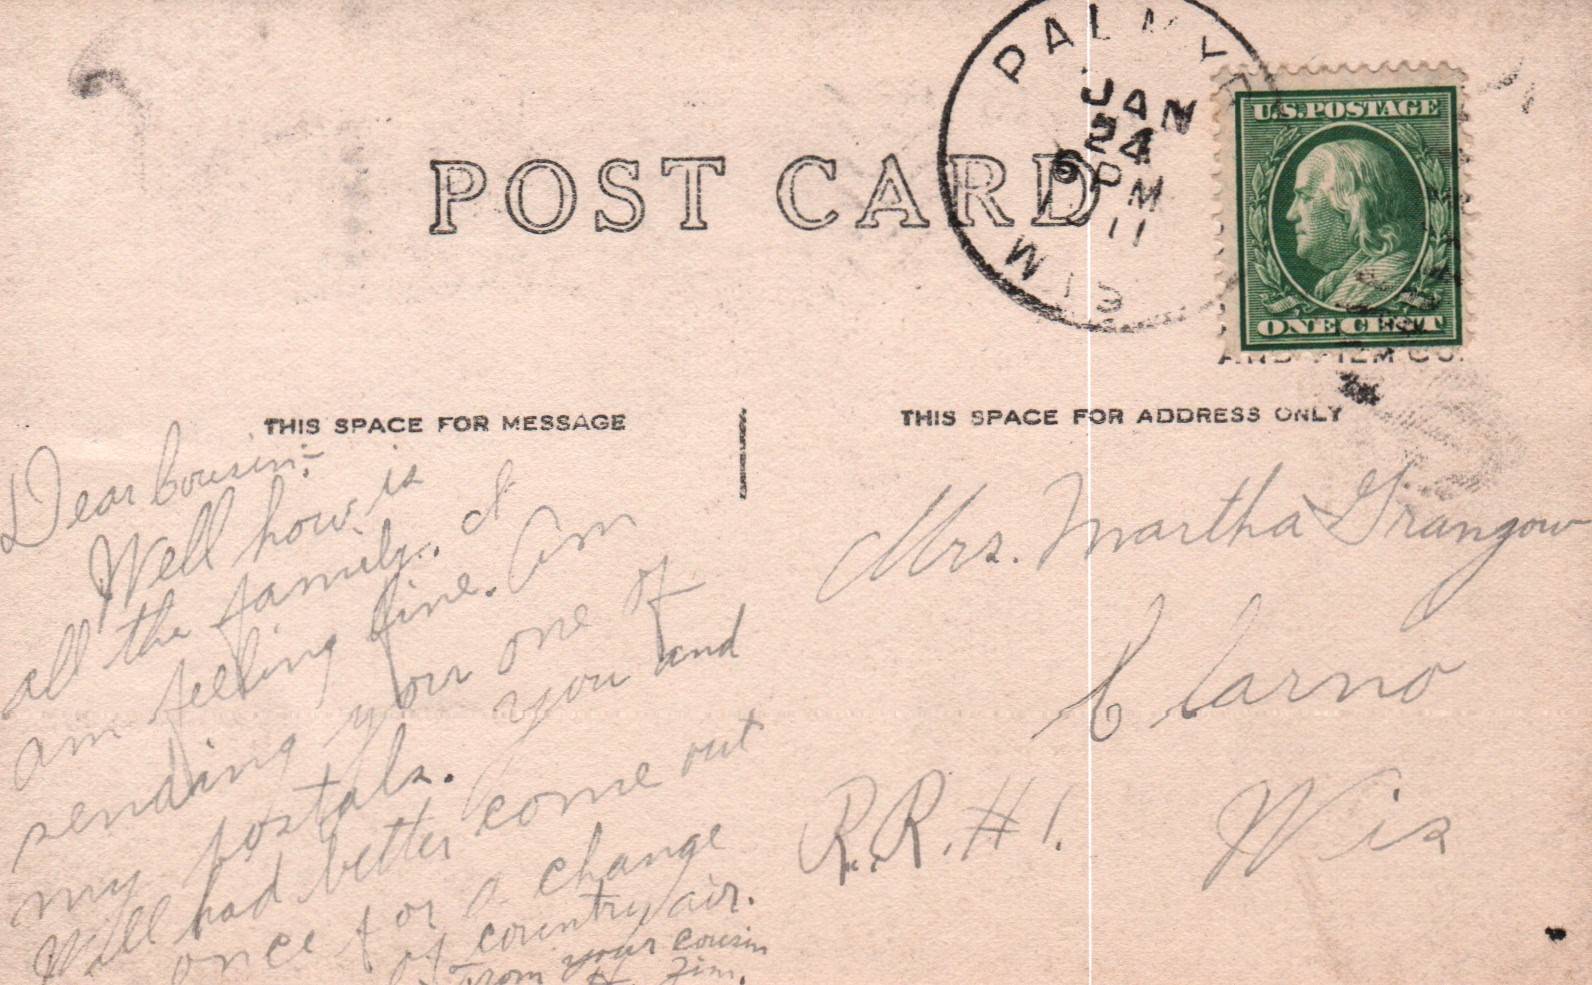 PALMYR
JAN
24
6 PM
11
WIS
U.S. POSTAGE
ONE CENT
POST CARD
AND FILM CO.
THIS SPACE FOR MESSAGE
THIS SPACE FOR ADDRESS ONLY
Dear Cousin:-
Well how is
all the family. I
am feeling fine. Am
sending your one of
my postals. You and
Will had better come out
once for a change
of country air.
From your cousin
H. Zim.
Mrs. Martha Grangow
Clarno
R.R. # 1. Wis